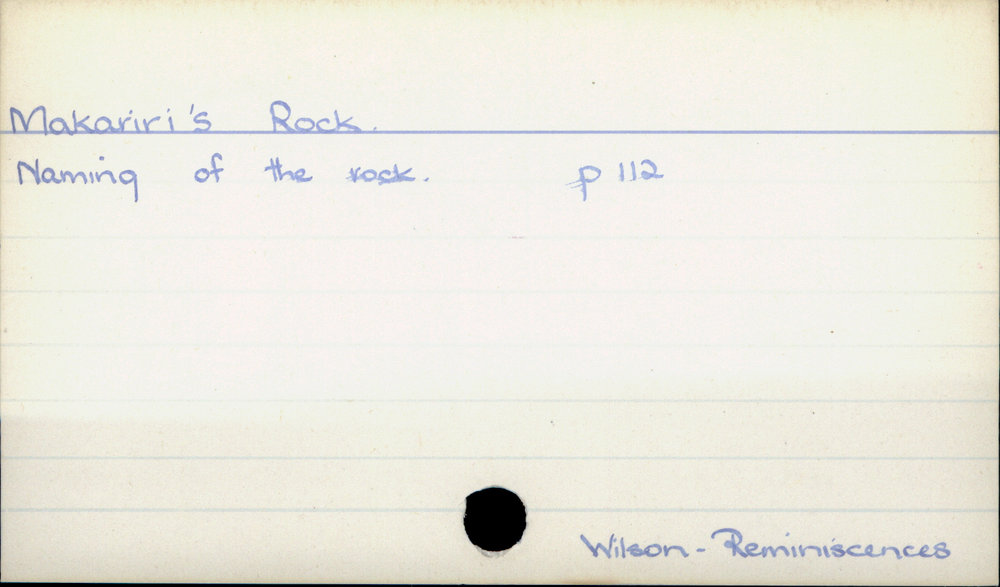 Makariri's Rock.
Naming of the rock. p 112
Wilson - Reminiscences